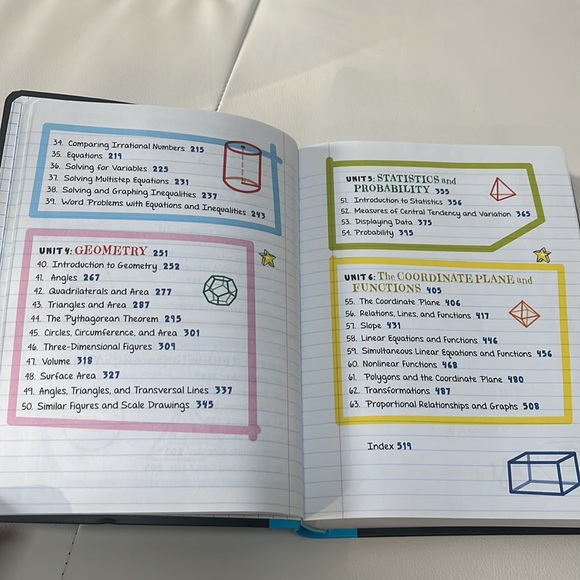 34. Comparing Irrational Numbers 215
35. Equations 219
36. Solving for Variables 225
37. Solving Multistep Equations 231
38. Solving and Graphing Inequalities 237
39. Word Problems with Equations and Inequalities 243
UNIT 4: GEOMETRY 251
40. Introduction to Geometry 252
41. Angles 267
42. Quadrilaterals and Area 277
43. Triangles and Area 287
44. The Pythagorean Theorem 295
45. Circles, Circumference, and Area 301
46. Three-Dimensional Figures 309
47. Volume 318
48. Surface Area 327
49. Angles, Triangles, and Transversal Lines 337
50. Similar Figures and Scale Drawings 345
UNIT 5: STATISTICS and
PROBABILITY 355
51. Introduction to Statistics 356
52. Measures of Central Tendency and Variation 365
53. Displaying Data 375
54. Probability 395
UNIT 6: The COORDINATE PLANE and
FUNCTIONS 405
55. The Coordinate Plane 406
56. Relations, Lines, and Functions 417
57. Slope 431
58. Linear Equations and Functions 446
59. Simultaneous Linear Equations and Functions 456
60. Nonlinear Functions 468
61. Polygons and the Coordinate Plane 480
62. Transformations 487
63. Proportional Relationships and Graphs 508
Index 519